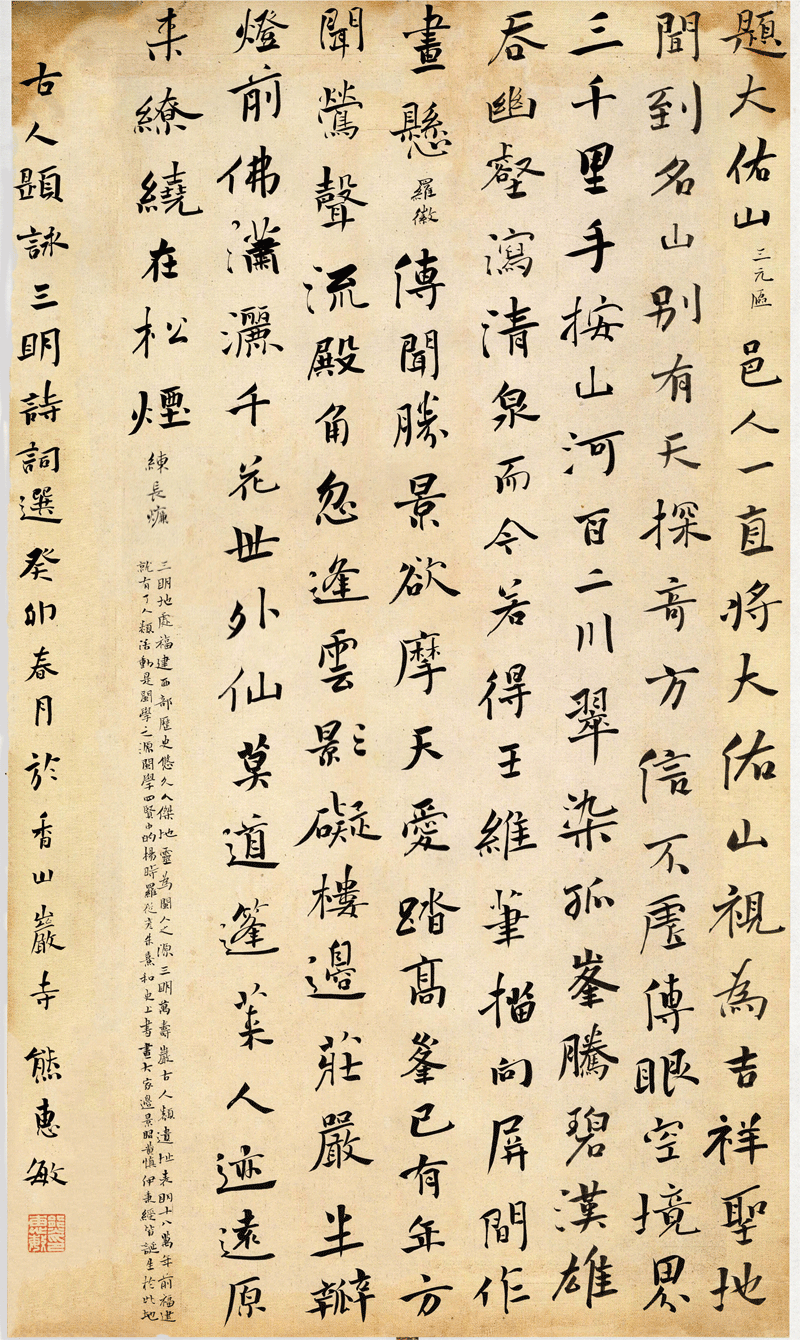 題大佑山 三元區 邑人一直將大佑山視為吉祥聖地
聞到名山别有天探奇方信不虛傳眼空境界
三千里手按山河百二川翠染孤峯騰碧漢雄
吞幽壑瀉清泉而今若得王維筆描向屏間作
畫懸 羅徵 傳聞勝景欲摩天愛踏高峯已有年方
聞鶯聲流殿角忽逢雲影礙樓邊莊嚴半瓣
燈前佛瀟灑千花世外仙莫道蓬萊人迹遠原
来繚繞在松煙 練長
三明地處福建西部歷史悠久人傑地靈為閩人之源三明萬壽巖古人類遺址表明十八萬年前福建
就有了人類活動是閩學之源閩學四賢中的楊時羅從彥朱熹和史上書畫大家邊景昭黃慎伊秉綬皆誕生於此地
古人題詠三明詩詞選癸卯春月於香山巖寺熊惠敏